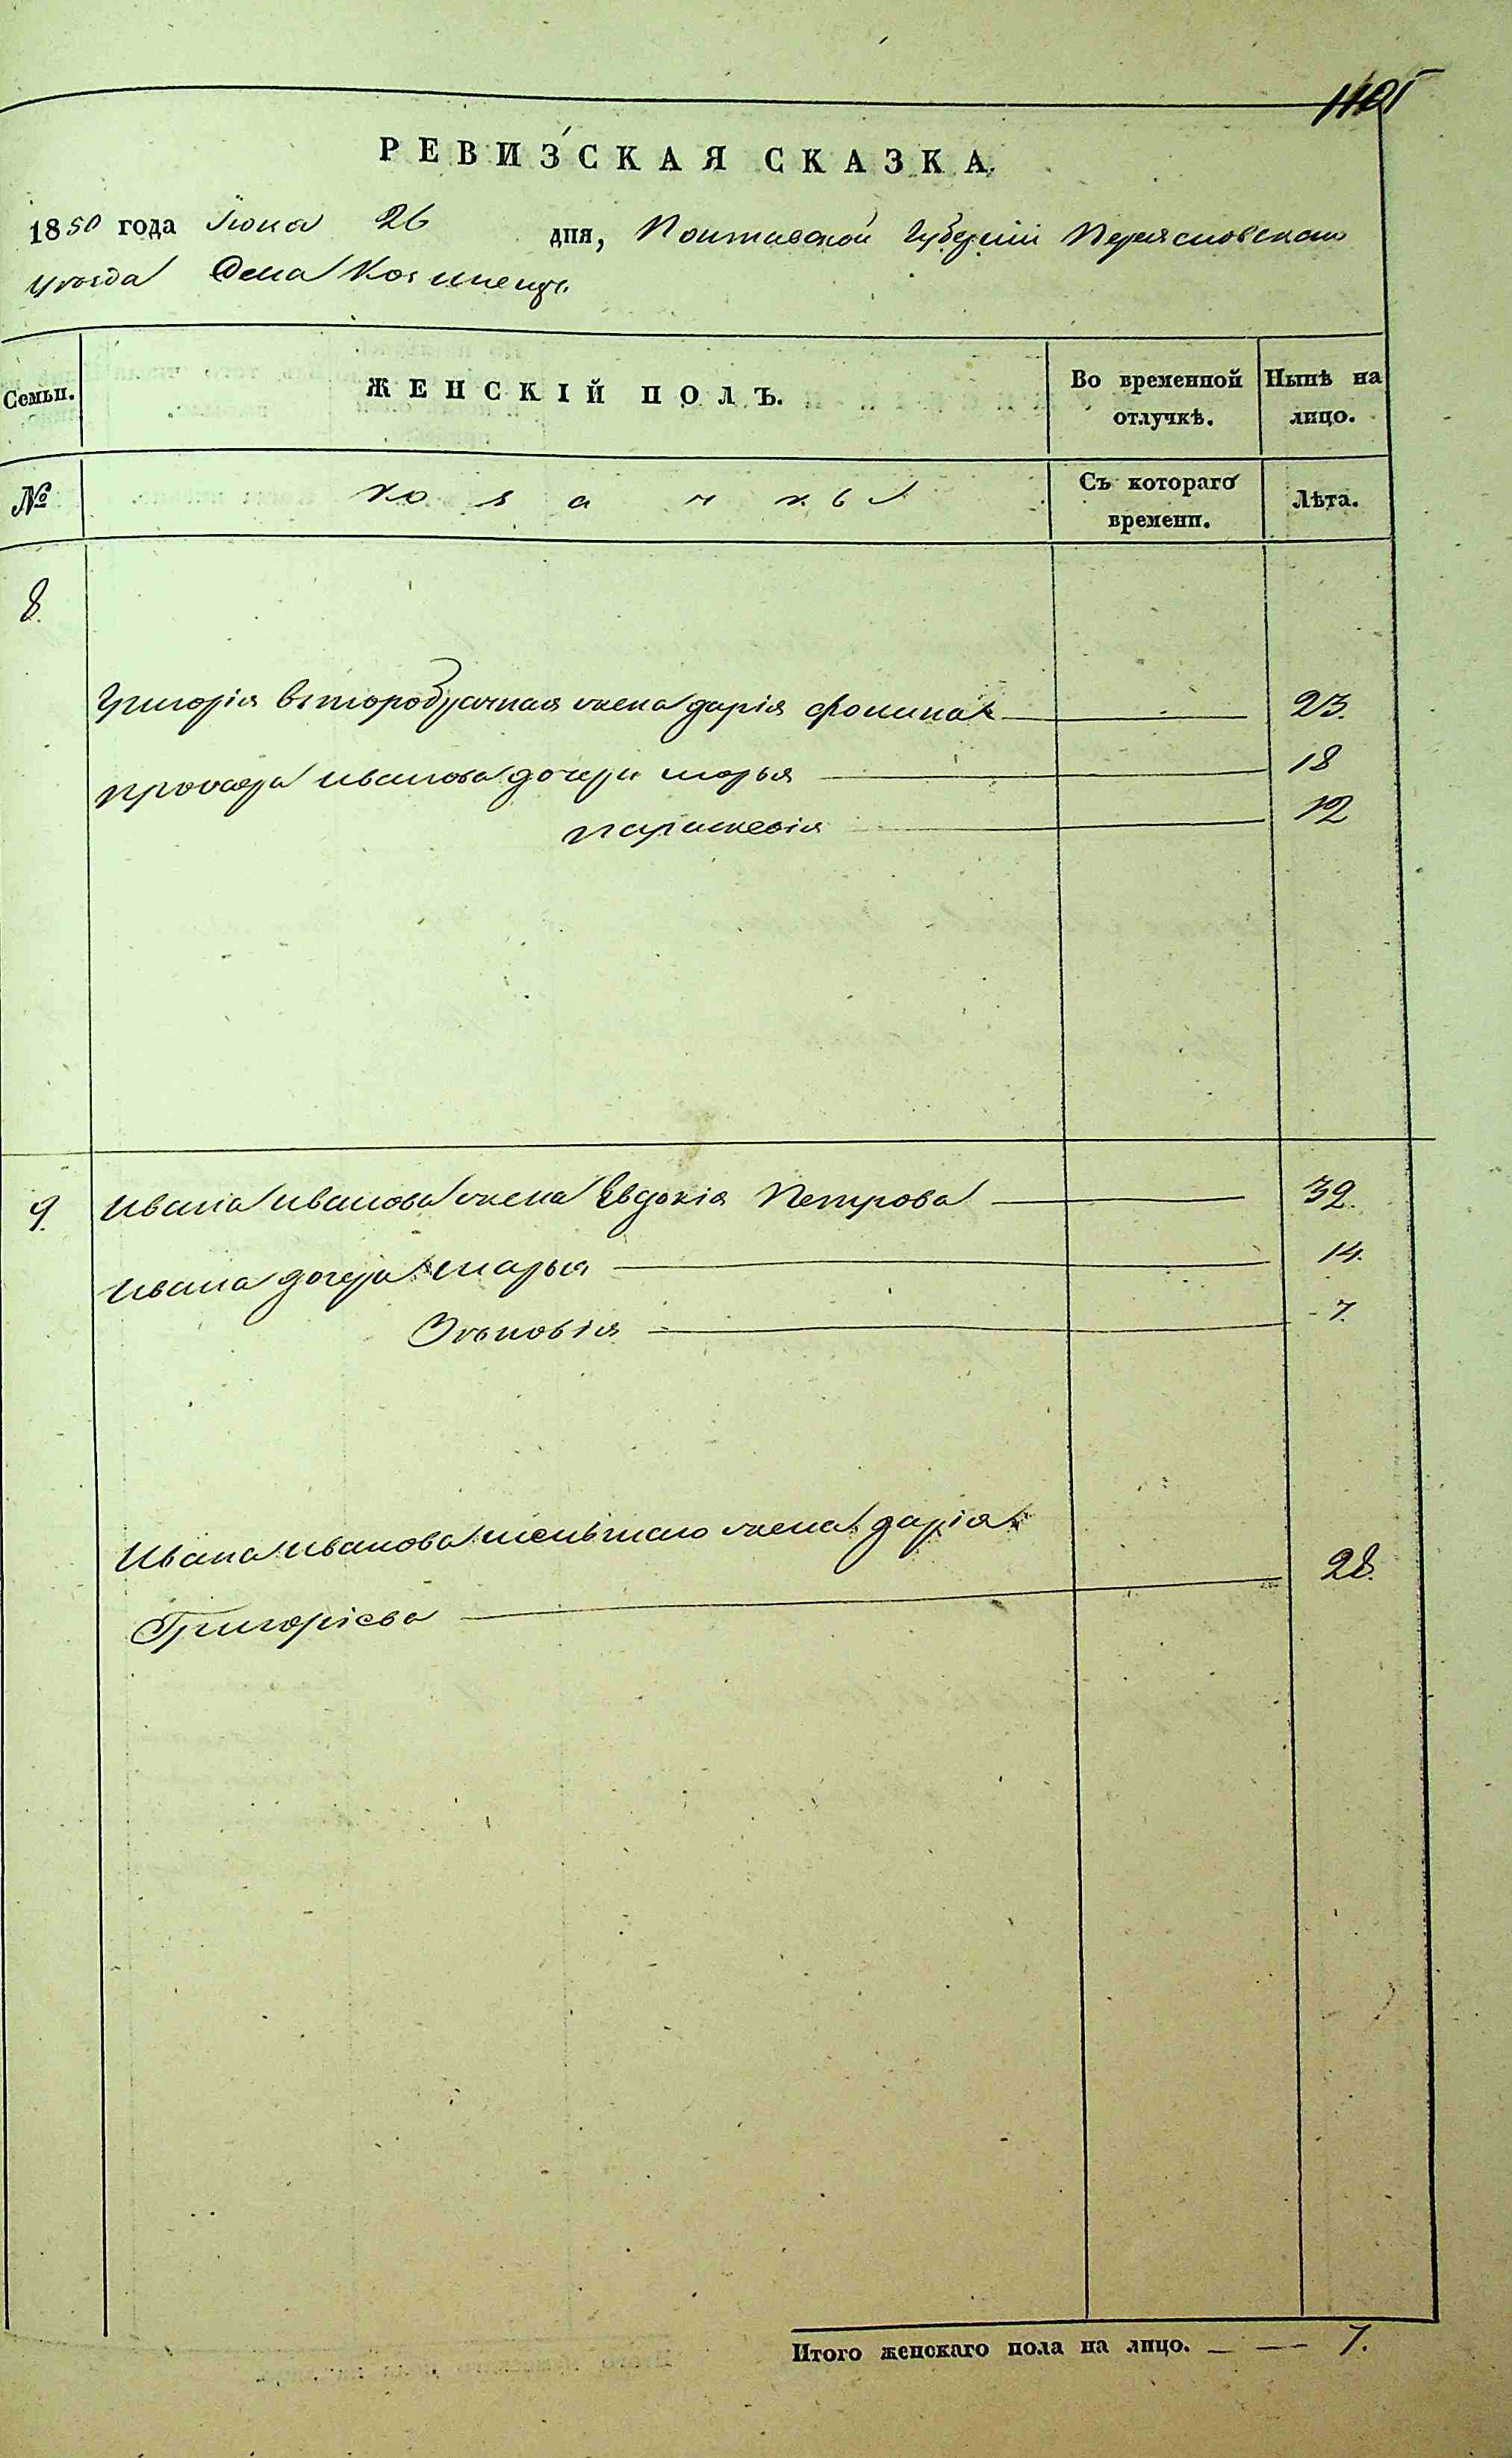 РЕВИЗСКАЯ СКАЗКА.
1850 года Іюня 26 дня, Полтавской Губерніи Переясловскаго
уезда Села
Семьи. ЖЕНСКІЙ ПОЛЪ. Во временной отлучкѣ. Нынѣ на лицо.
№ козачки Съ котораго времени. Лѣта.
8.
Григорія второбрачная жена дарія фомина 23.
прохора Иванова дочери марья 18
параскевія 12
9. Ивана Иванова жена Евдокія Петрова 39.
Ивана дочери марья 14.
Зѣновія 7.
Ивана Иванова меньшаго жена дарія
Григоріева 28.
Итого женскаго пола на лицо. — — 7.